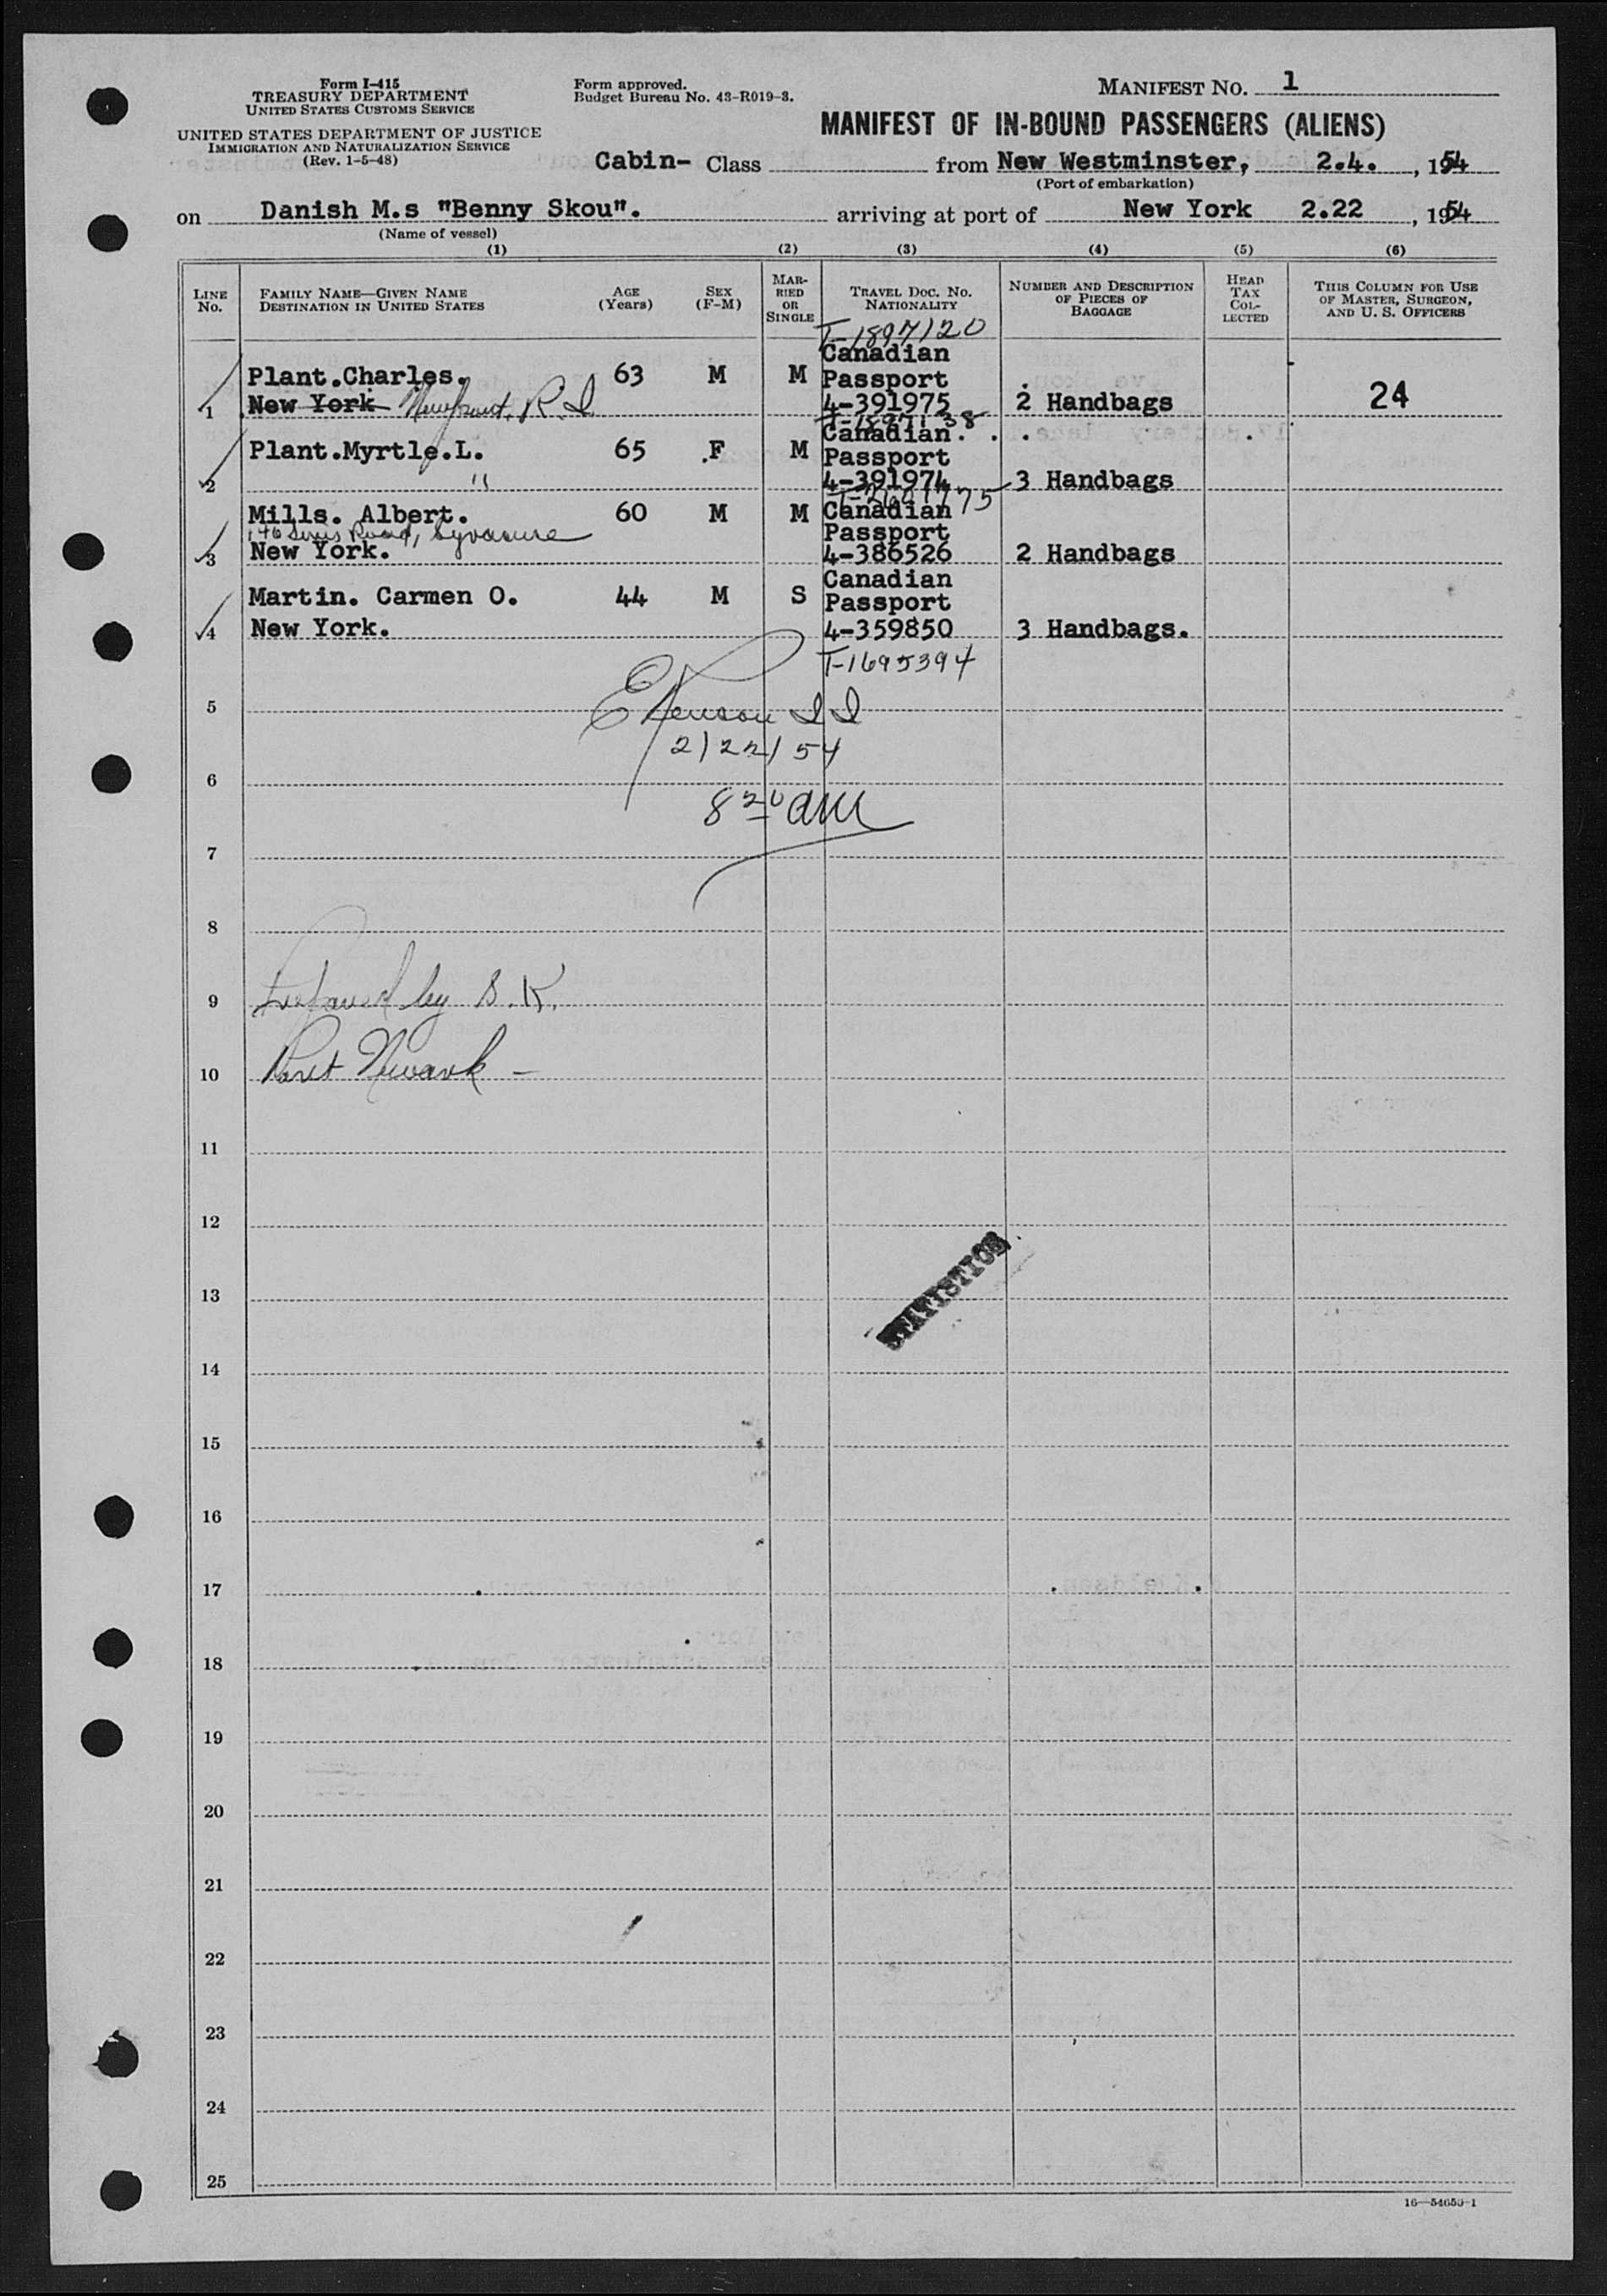 Form I-415
TREASURY DEPARTMENT
UNITED STATES CUSTOMS SERVICE
UNITED STATES DEPARTMENT OF JUSTICE
IMMIGRATION AND NATURALIZATION SERVICE
(Rev. 1-5-48)
Form approved.
Budget Bureau No. 43-R019-3.
MANIFEST NO. 1
MANIFEST OF IN-BOUND PASSENGERS (ALIENS)
Cabin- Class from New Westminster, 2.4. , 1954
(Port of embarkation)
on Danish M.s "Benny Skou". arriving at port of New York 2.22 , 1954
(Name of vessel)
(1) (2) (3) (4) (5) (6)
LINE NO.
FAMILY NAME—GIVEN NAME
DESTINATION IN UNITED STATES
AGE (Years)
SEX (F-M)
MARRIED OR SINGLE
TRAVEL DOC. NO. NATIONALITY
NUMBER AND DESCRIPTION OF PIECES OF BAGGAGE
HEAD TAX COLLECTED
THIS COLUMN FOR USE OF MASTER, SURGEON, AND U. S. OFFICERS
T-1897120
Canadian
Plant.Charles. 63 M M Passport
1 New York Newport. R.I 4-391975 2 Handbags 24
T-1897138
Canadian.
Plant.Myrtle.L. 65 F M Passport
2 " 4-391974 3 Handbags
Mills. Albert. 60 M M Canadian
Road, Syracuse Passport
3 New York. 4-386526 2 Handbags
Canadian
Martin. Carmen O. 44 M S Passport
4 New York. 4-359850 3 Handbags.
T-1695394
5
2/22/54
6
8 20 AM
7
8
9 Prepared by S.K.
10 Port Newark -
11
12
STATISTICS
13
14
15
16
17
18
19
20
21
22
23
24
25
16—54650-1